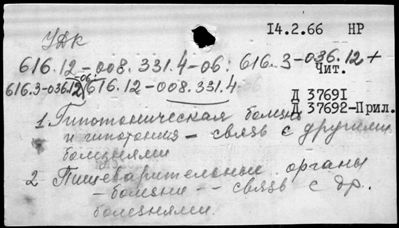 14.2.66 НР
УДК
616.12-008.331.4-06:616.3-036.12+
Чит.
616.3-036.12:616.12-008.331.4
06
Д 37691
Д 37692-Прил.
1 Гипотоническая болезнь
и гипотония - связь с другими
болезнями
2 Пищеварительные органы
- болезни -- связь с др.
болезнями.